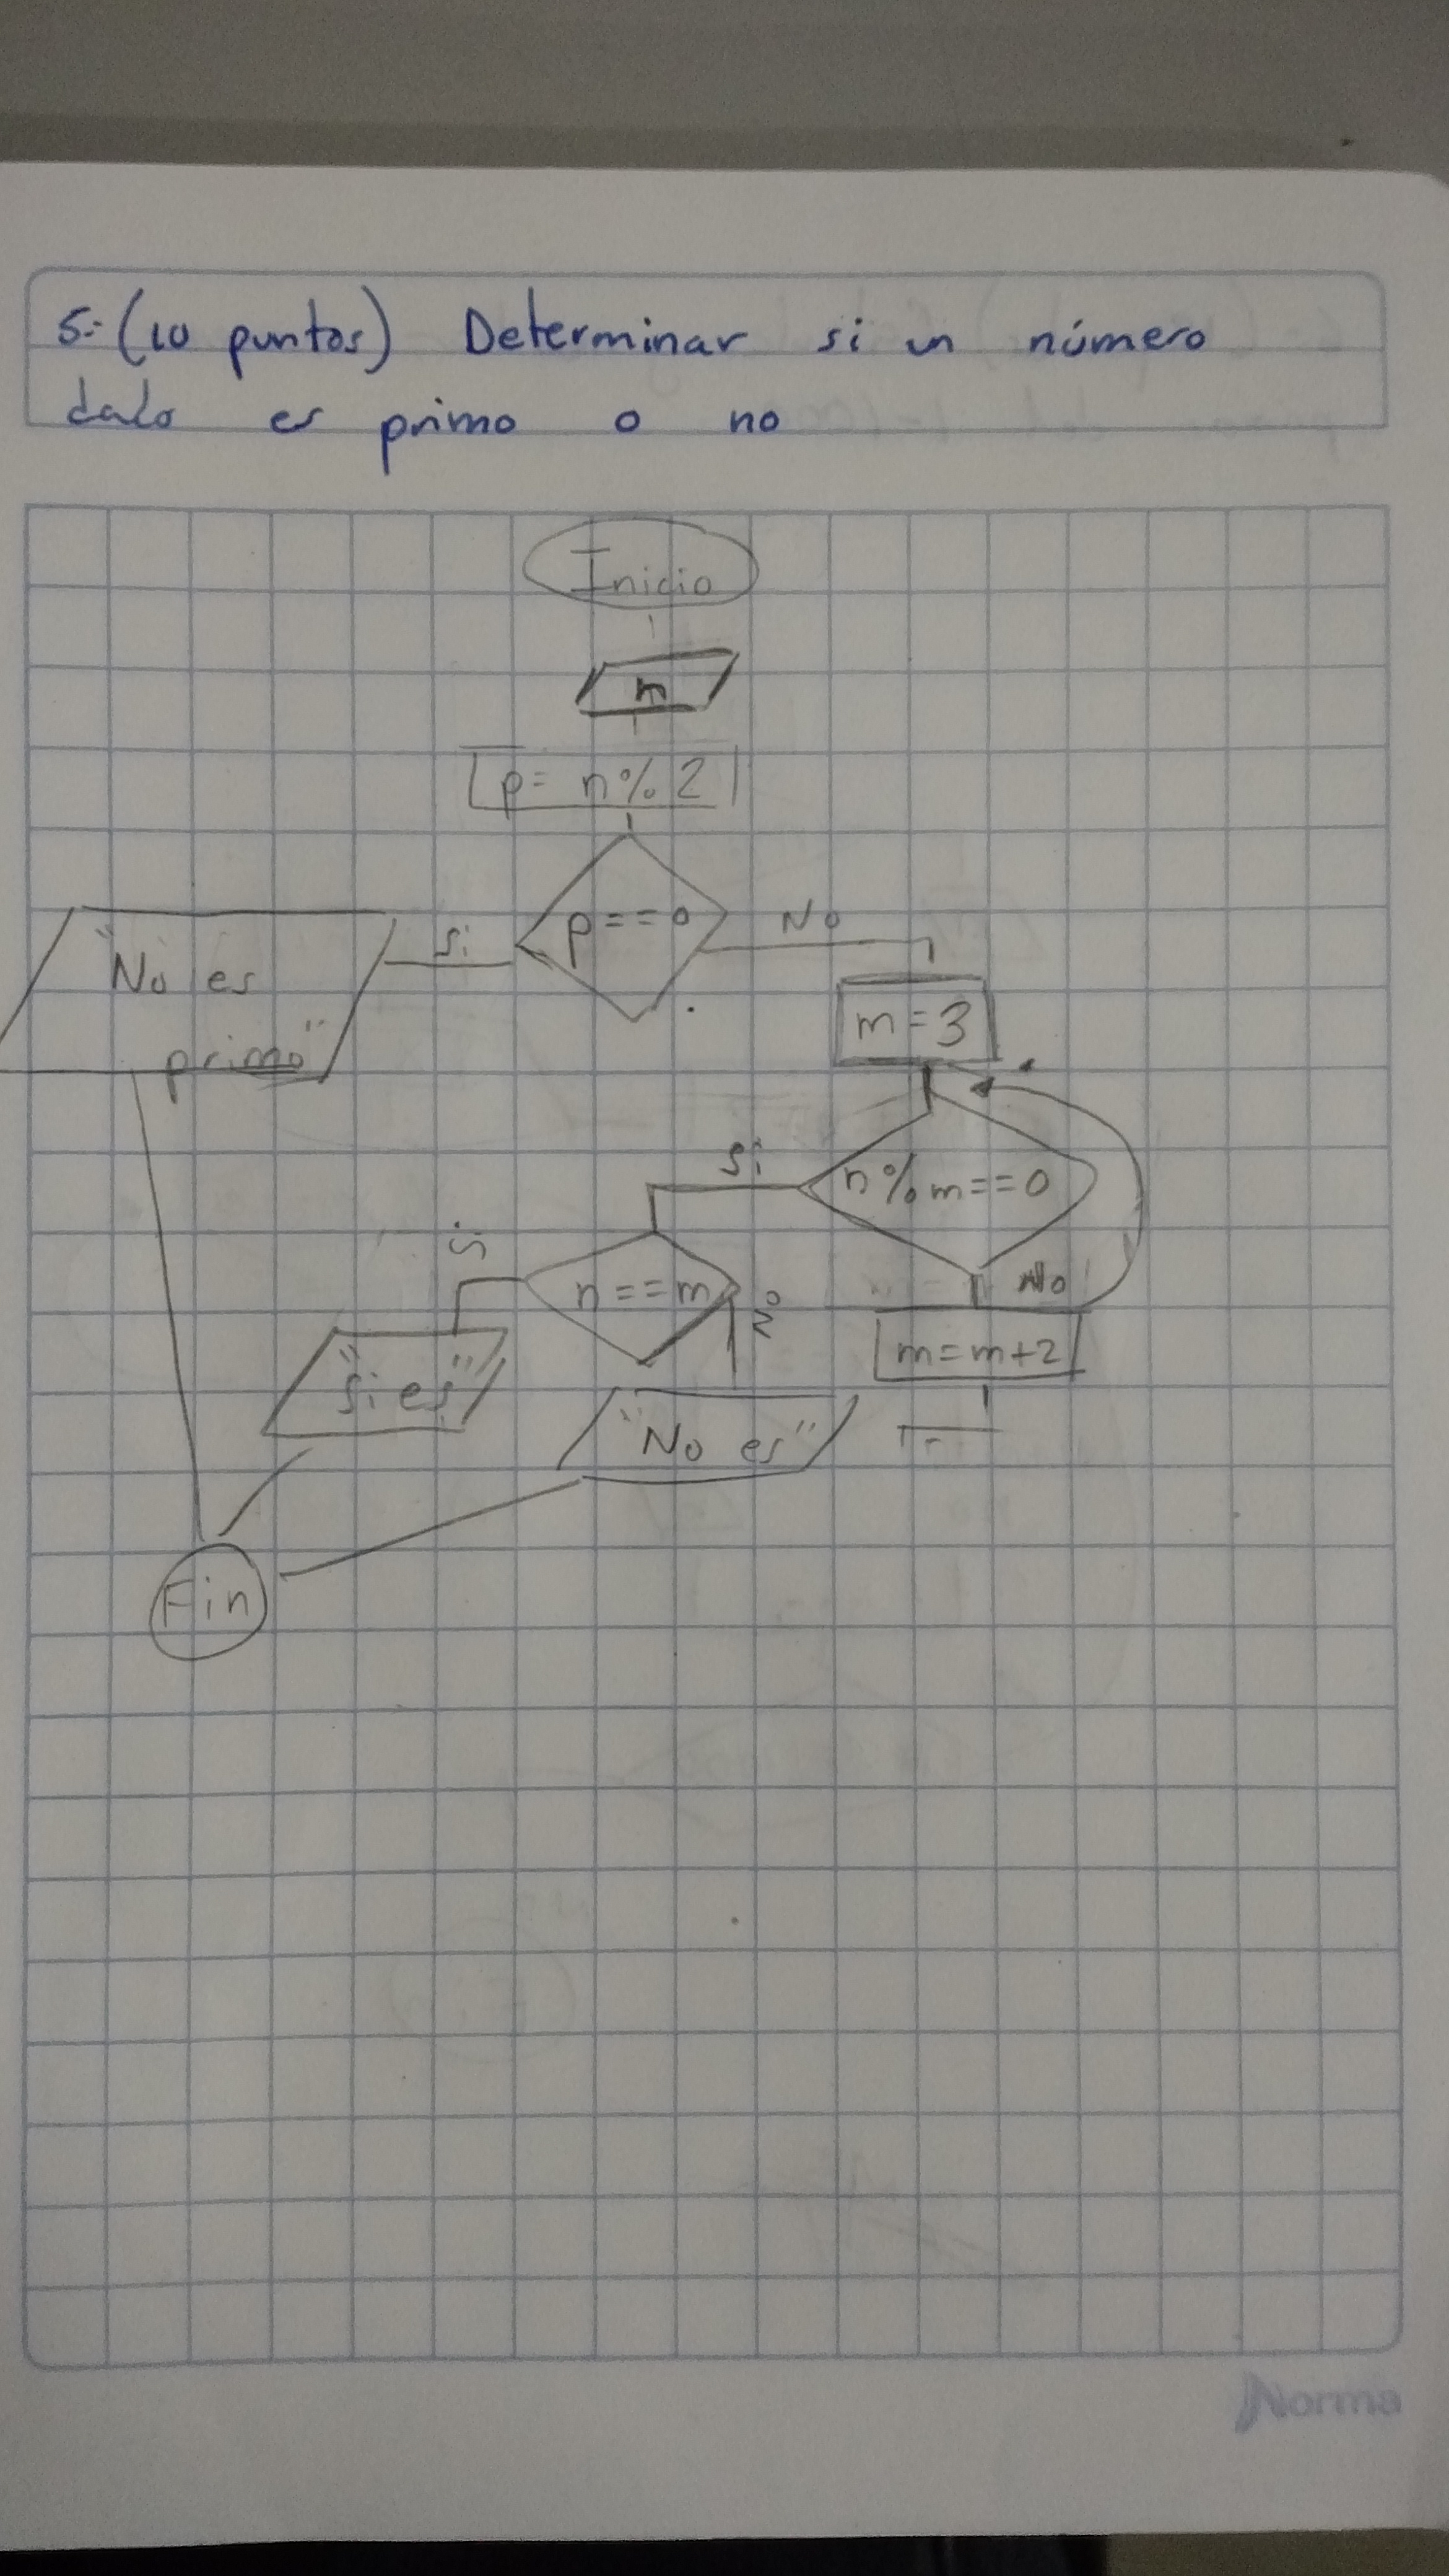 5.- (10 puntos) Determinar si un número
dado es primo o no
Inicio
n
p= n%2
p==0
Si
No
"No es
primo"
m=3
n%m==0
Si
No
n==m
Si
No
m=m+2
"Si es"
"No es"
Fin
Norma